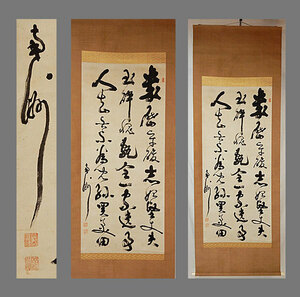 南洲
幾歴辛酸志始堅丈夫
玉砕愧甎全一家遺事
人知否不為児孫買美田
南洲
幾歴辛酸志始堅丈夫
玉砕愧甎全一家遺事
人知否不為児孫買美田
南洲